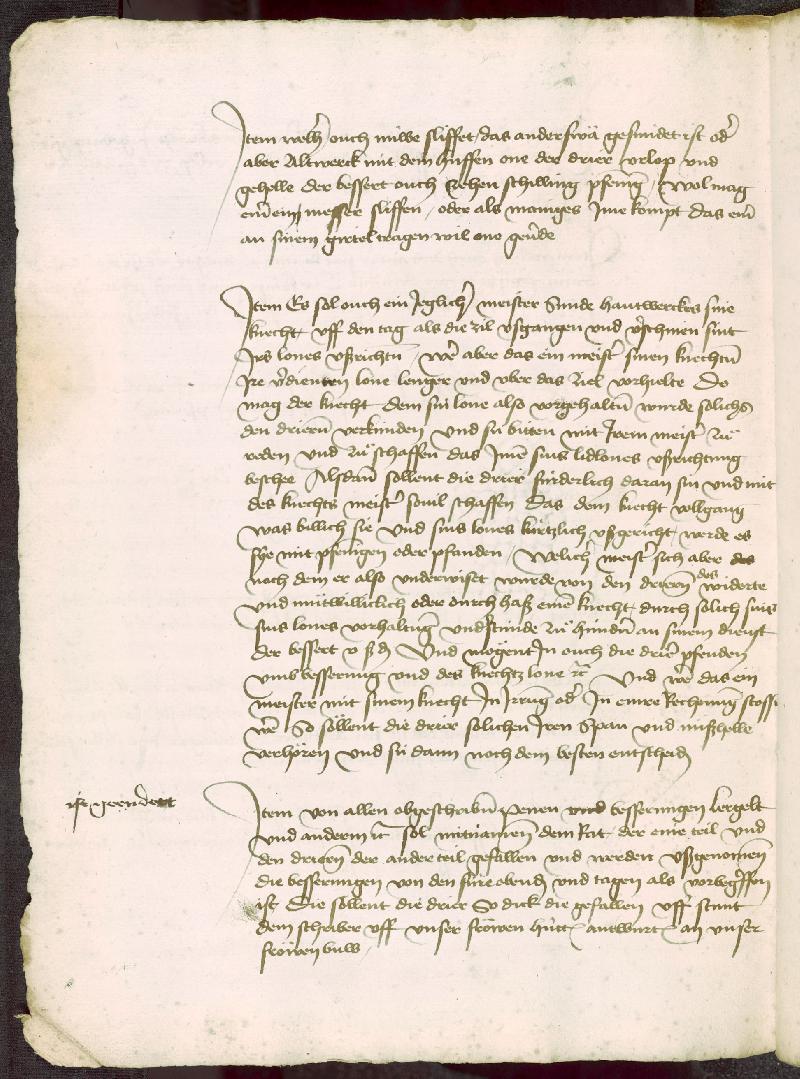 Item welh' ouch nüwe sliffet, das anderswa gesmidet ist od'
aber Altwerck mit dem hüffen one der drier vrlop vnd
gehelle der bessert ouch zehen schilling pfennig, Wol mag
ein' ein messer sliffen, oder als mainges Ime kompt das ein'
an sinem girtel tragen wil one geu'de
Item Es sol ouch ein Jeglich' meister diss hantwercks sine
knecht vff den tag als die zil vsgangen vnd v'schinen sint
Irs lones vßrichtn, Wer aber das ein meist' sinen knechtn
Ire v'dienten lone lenger vnd vber das ziel vorhielte Do
mag der knecht dem sin lone also vorgehaltn wurde solichs
den driern verkünden vnd sü bitten mit Irem meist' zü
reden vnd zü schaffen das Ime sins lidlones vßrichtung
beschee Alsdann sollent die drier fürderlich daran sin vnd mit
des knechts meist' souil schaffen Das dem knecht vollgang
was billich sie Vnd sins lones kürtzlich vßgericht werde es
sye mit pfennigen oder pfanden, Welich' meist' sich aber
noch dem er also vnderwiset wurde von den driern des widerte
vnd mütwilliclich oder durch haß einen knecht durch solich sins
sins lones vorhaltung vnd stünde zü hindn an sinem dienst
der bessert v ß d Vnd mögent In ouch die drier pfenden
vmb besserung vnd des knechtz lone etc Vnd wer das ein
meister mit sinem knecht In Irrung od' In einre Rechnung stossig
wer So söllent die drier solichen Iren Span vnd mißhelle
verhören vnd sü dann noch dem besten entscheid
ist geendert
Item von allen obgeschribn penen vnd besserungen
vnd anderm etc sol mitnamen dem Rat der eine teil vnd
den driern der ander teil gefallen vnd werden vßgenomen
die besserungen von den fire obend vnd tagen als vorbegriffen
ist Die söllent die drier So dick die gefallen vff stunt
dem schriber vff vnser frowen huse antwurt an vnser
frowen buw